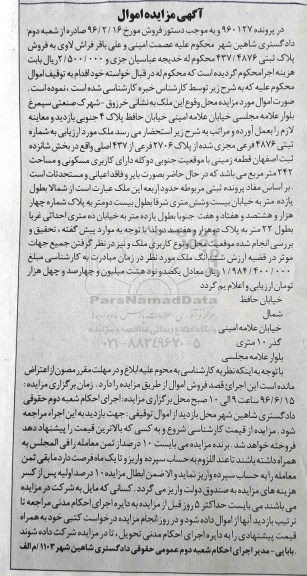 آگهی مزایده اموال
در پرونده ۹۶۰۱۲۷ و به موجب دستور فروش مورخ ۹۶/۲/۱۶ صادره از شعبه دوم
دادگستری شاهین شهر محکوم علیه عصمت امینی و علی باقر فراش لاوی به فروش
پلاک ثبتی ۴۳۷/۴۸۷۶ محکوم له خدیجه عباسیان جزی و ۲/۵۰۰/۰۰۰ ریال بابت
هزینه اجرا محکوم گردیده است که محکوم له در قبال خواسته خود اقدام به توقیف اموال
محکوم علیه که به شرح زیر توسط کارشناس خبره کارشناسی شده است، نموده است.
صورت اموال مورد مزایده محل وقوع این ملک به نشانی خرزوق - شهرک صنعتی سیمرغ
بلوار علامه مجلسی خیابان علامه امینی خیابان حافظ پلاک ۴ جنوبی بازدید و معاینه
لازم را بعمل آورده و مراتب به شرح زیر استحضار می رسد ملک مورد ارزیابی به شماره
ثبتی ۴۸۷۶ فرعی مجزی شده از پلاک ۲۷۰۶ فرعی از ۴۳۷ اصلی واقع در بخش شانزده
ثبت اصفهان قطعه زمینی با موقعیت جنوبی دو کله دارای کاربری مسکونی و مساحت
۲۴۲ متر مربع می باشد که در حال حاضر بصورت بایر و فاقد اعیانی و مستحدثات است
. بر اساس مفاد پرونده ثبتی مربوطه حدود اربعه این ملک عبارت است از شمالا بطول
یازده متر به خیابان بیست وشش متری شرقا بطول بیست دو متر به پلاک شماره چهار
هزار و هشتصد و هفتاد و هفت جنوبا بطول یازده متر به خیابان ده متری احداثی غربا
بطول ۲۲ متر به پلاک دو هزار و هفتصد دو لذا با توجه به موارد پیش گفته، تحقیق و
بررسی انجام شده موقعیت محل و نوع کاربری ملک و نیز در نظر گرفتن جمیع جهات
موثر در قضیه ارزش ششدانگ ملک مورد نظر در زمان مبادرت به کارشناسی مبلغ
۱/۹۸۴/۴۰۰/۰۰۰ ریال معادل یکصد و نود هشت میلیون و چهارصد و چهل هزار
تومان ارزیابی و اعلام یم گردد
خیابان حافظ
شمال
خیابان علامه امینی
گذر ۱۰ متری
بلوار علامه مجلسی
با توجه به اینکه نظریه کارشناسی به محوم علیه ابلاغ و در مهلت مقرر مصون از اعتراض
مانده است این اجرای قصد فروش اموال از طریق مزایده را دارد. زمان برگزاری مزایده:
۹۶/۶/۱۵ ساعت ۹ الی ۱۰ صبح محل برگزاری مزایده: اجرای احکام شعبه دوم حقوقی
دادگستری شاهین شهر محل بازدید از اموال توقیفی: جهت بازدید به این اجراه مراجعه
شود. مزایده از قیمت کارشناسی شروع و به کسی که بالاترین قیمت را پیشنهاد دهد
فروخته خواهد شد. برنده مزایده می بایست ۱۰ درصد از ثمن معامله را فی المجلس به
همراه داشته باشند تا عند اللزوم به حساب سپرده واریز و تا یک ماه فرصت دارد مابقی ثمن
معامله را به حساب سپرده واریز نماید و الا ضمن ابطال مزایده ۱۰ درصد اولیه پس از کسر
هزینه های مزایده به صندوق دولت واریز می گردد. کسانی که مایل به شرکت در مزایده
می باشند می بایست حداکثر ۵ روز قبل از مزایده به دایره اجرای احکام مدنی مراجعه تا
ترتیب بازدید آنها از اموال داده شود و در روز انجام مزایده درخواست کتبی خود به همراه
قیمت پیشنهادی را به دایره اجرای احکام مدنی تحویل، تا در مزایده شرکت داده شوند.
بابایی - مدیر اجرای احکام شعبه دوم عمومی حقوقی دادگستری شاهین شهر ۱۱۰۳/م الف
ParsNamadData
۰۲۱-۸۸۳۴۹۶۷۰-۵